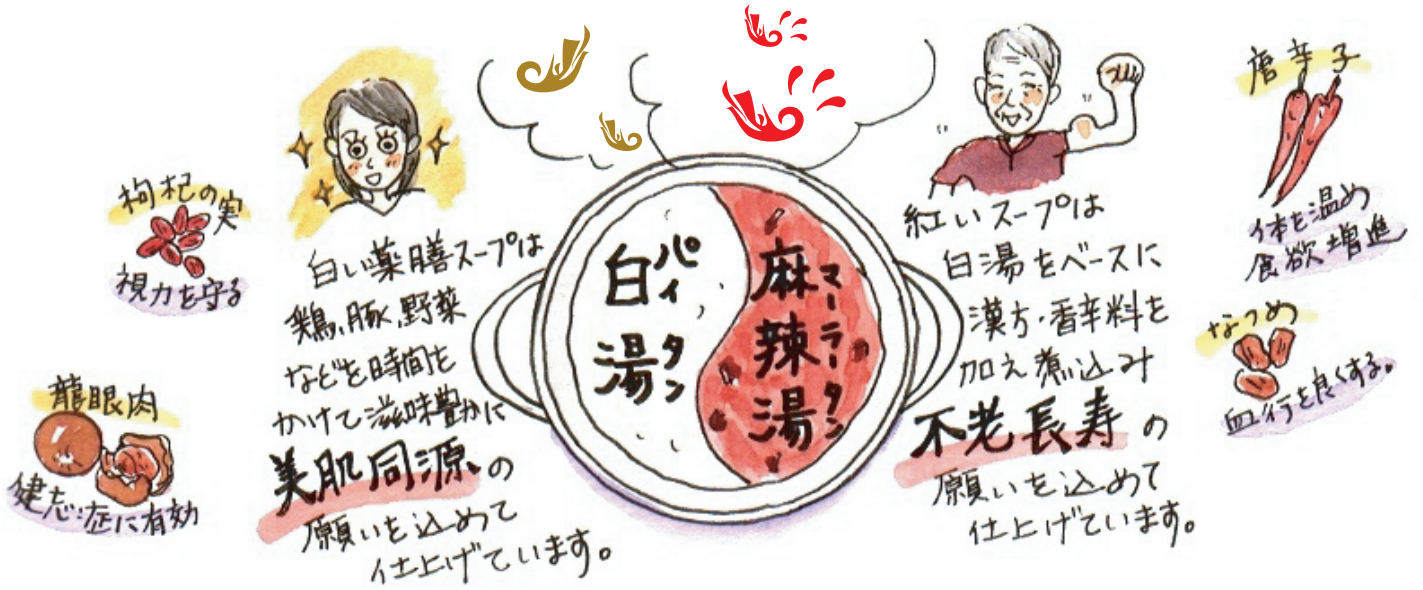 枸杞の実
視力を守る
龍眼肉
健忘症に有効
白い薬膳スープは
鶏、豚、野菜
などを時間を
かけて滋味豊かに
美肌同源の
願いを込めて
仕上げています。
白湯
パイタン
麻辣湯
マーラータン
紅いスープは
白湯をベースに
漢方・香辛料を
加え煮込み
不老長寿の
願いを込めて
仕上げています。
唐辛子
体を温め
食欲増進
なつめ
血行を良くする。